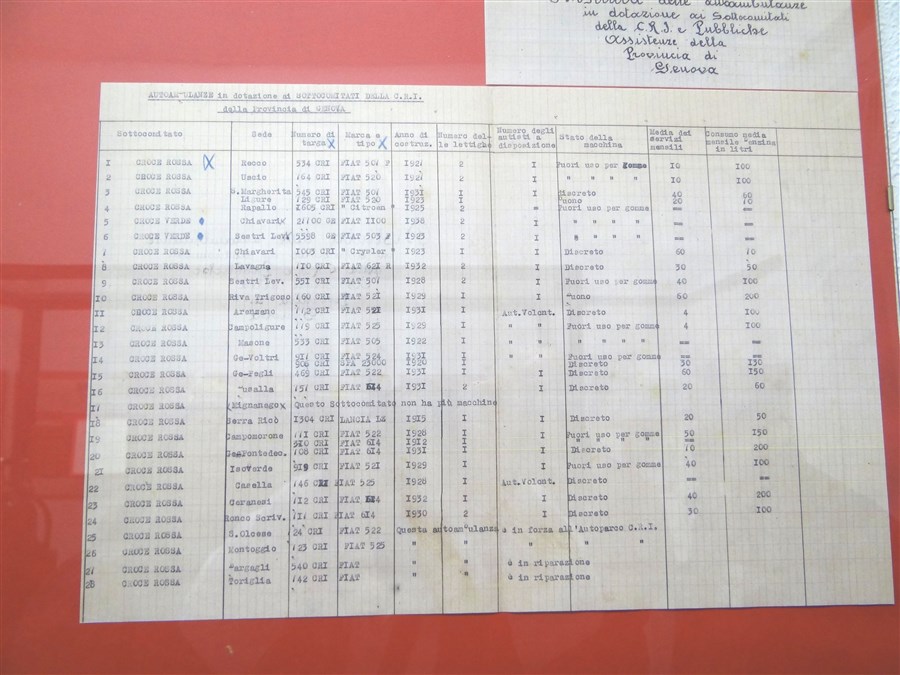 delle autoambulanze
in dotazione ai Sottocomitati
della C.R.I. e Pubbliche
Assistenze della
Provincia di
Genova
AUTOAMBULANZE in dotazione ai SOTTOCOMITATI DELLA C.R.I.
della Provincia di GENOVA
Sottocomitato Sede Numero di targa Marca e tipo Anno di costruz. Numero delle lettighe Numero degli autisti a disposizione Stato della macchina Media dei servizi mensili Consumo medio mensile benzina in litri
1 CROCE ROSSA Recco 534 CRI FIAT 507 F 1927 2 I Fuori uso per gomme 10 100
2 CROCE ROSSA Uscio 764 CRI FIAT 520 1927 2 I " " " " 10 100
3 CROCE ROSSA S.Margherita 545 CRI FIAT 507 1931 I I discreto 40 60
Ligure 729 CRI FIAT 520 1923 I I uono 20 70
4 CROCE ROSSA Rapallo 1665 CRI " Citroen " 1925 2 " Fuori uso per gomme == ==
5 CROCE VERDE Chiavari 21700 GE FIAT 1100 1938 2 I " " " " == ==
6 CROCE VERDE Sestri Lev. 5598 GE FIAT 503 F 1923 2 I " " " " == ==
7 CROCE ROSSA Chiavari 1003 CRI " Crysler " 1923 I I Discreto 60 70
8 CROCE ROSSA Lavagna 710 CRI FIAT 621 R 1932 2 I Discreto 30 50
9 CROCE ROSSA Sestri Lev. 551 CRI FIAT 507 1928 2 I Fuori uso per gomme 40 100
10 CROCE ROSSA Riva Trigoso 760 CRI FIAT 521 1929 I I "uono 60 200
11 CROCE ROSSA Arenzano 772 CRI FIAT 521 1931 I Aut.Volont. Discreto 4 100
12 CROCE ROSSA Campoligure 779 CRI FIAT 525 1929 I " " Fuori uso per gomme 4 100
13 CROCE ROSSA Masone 533 CRI FIAT 505 1922 I " " " " " " == ==
14 CROCE ROSSA Ge-Voltri 917 CRI FIAT 524 1931 I I Fuori uso per gomme == ==
906 CRI SPA 23000 1920 I I Discreto 30 150
15 CROCE ROSSA Ge-Pegli 469 CRI FIAT 522 1931 I I Discreto 60 150
16 CROCE ROSSA "usalla 757 CRI FIAT 614 1931 2 I Discreto 20 60
17 CROCE ROSSA Mignanego Questo Sottocomitato non ha più macchine
18 CROCE ROSSA Serra Riccò 1304 CRI LANCIA 1915 I I Discreto 20 50
19 CROCE ROSSA Campomorone 771 CRI FIAT 522 1928 I I Fuori uso per gomme 50 150
510 CRI FIAT 614 1912 I I " " " " " "
20 CROCE ROSSA GePontedec. 708 CRI FIAT 614 1931 I I Discreto 70 200
21 CROCE ROSSA Isoverde 919 CRI FIAT 521 1929 I I Fuori uso per gomme 40 100
22 CROCE ROSSA Casella 746 CRI FIAT 525 1928 I Aut.Volont. Discreto == ==
23 CROCE ROSSA Ceranesi 712 CRI FIAT 614 1932 I I Discreto 40 200
24 CROCE ROSSA Ronco Scriv. 717 CRI FIAT 614 1930 2 I Discreto 30 100
25 CROCE ROSSA S.Olcese 24 CRI FIAT 522 Questa autoambulanza è in forza all'Autoparco C.R.I.
26 CROCE ROSSA Montoggio 723 CRI FIAT 525 " " " "
27 CROCE ROSSA "argagli 540 CRI FIAT " " è in riparazione
28 CROCE ROSSA Toriglia 742 CRI FIAT " " è in riparazione